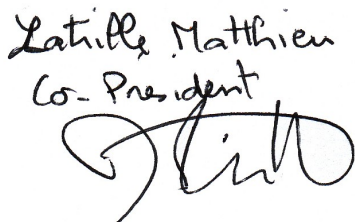 Latrille Matthieu
Co-President